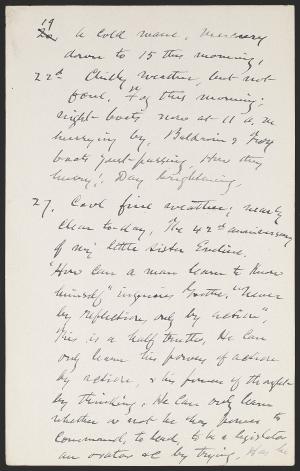 19
20 A cold wave, mercury
down to 15 this morning,
22d Chilly weather, but not
foul. Fog this morning;
night boats now at 11 a.m
hurrying by, Baldwin & Troy
boats just passing, How they
hurry! Day brightening,
27. Cool fine weather; nearly
clear to-day, The 42d anniversary
of my little sister Eveline.
"How can a man learn to know
himself" inquires Goethe. "Never
by reflection, only by action",
This is a half truth, He can
only learn his powers of action
by action, & his powers of thought
by thinking. He can only learn
whether or not he has power to
command, to lead, to be a legislator
an orator &c by trying. Has he